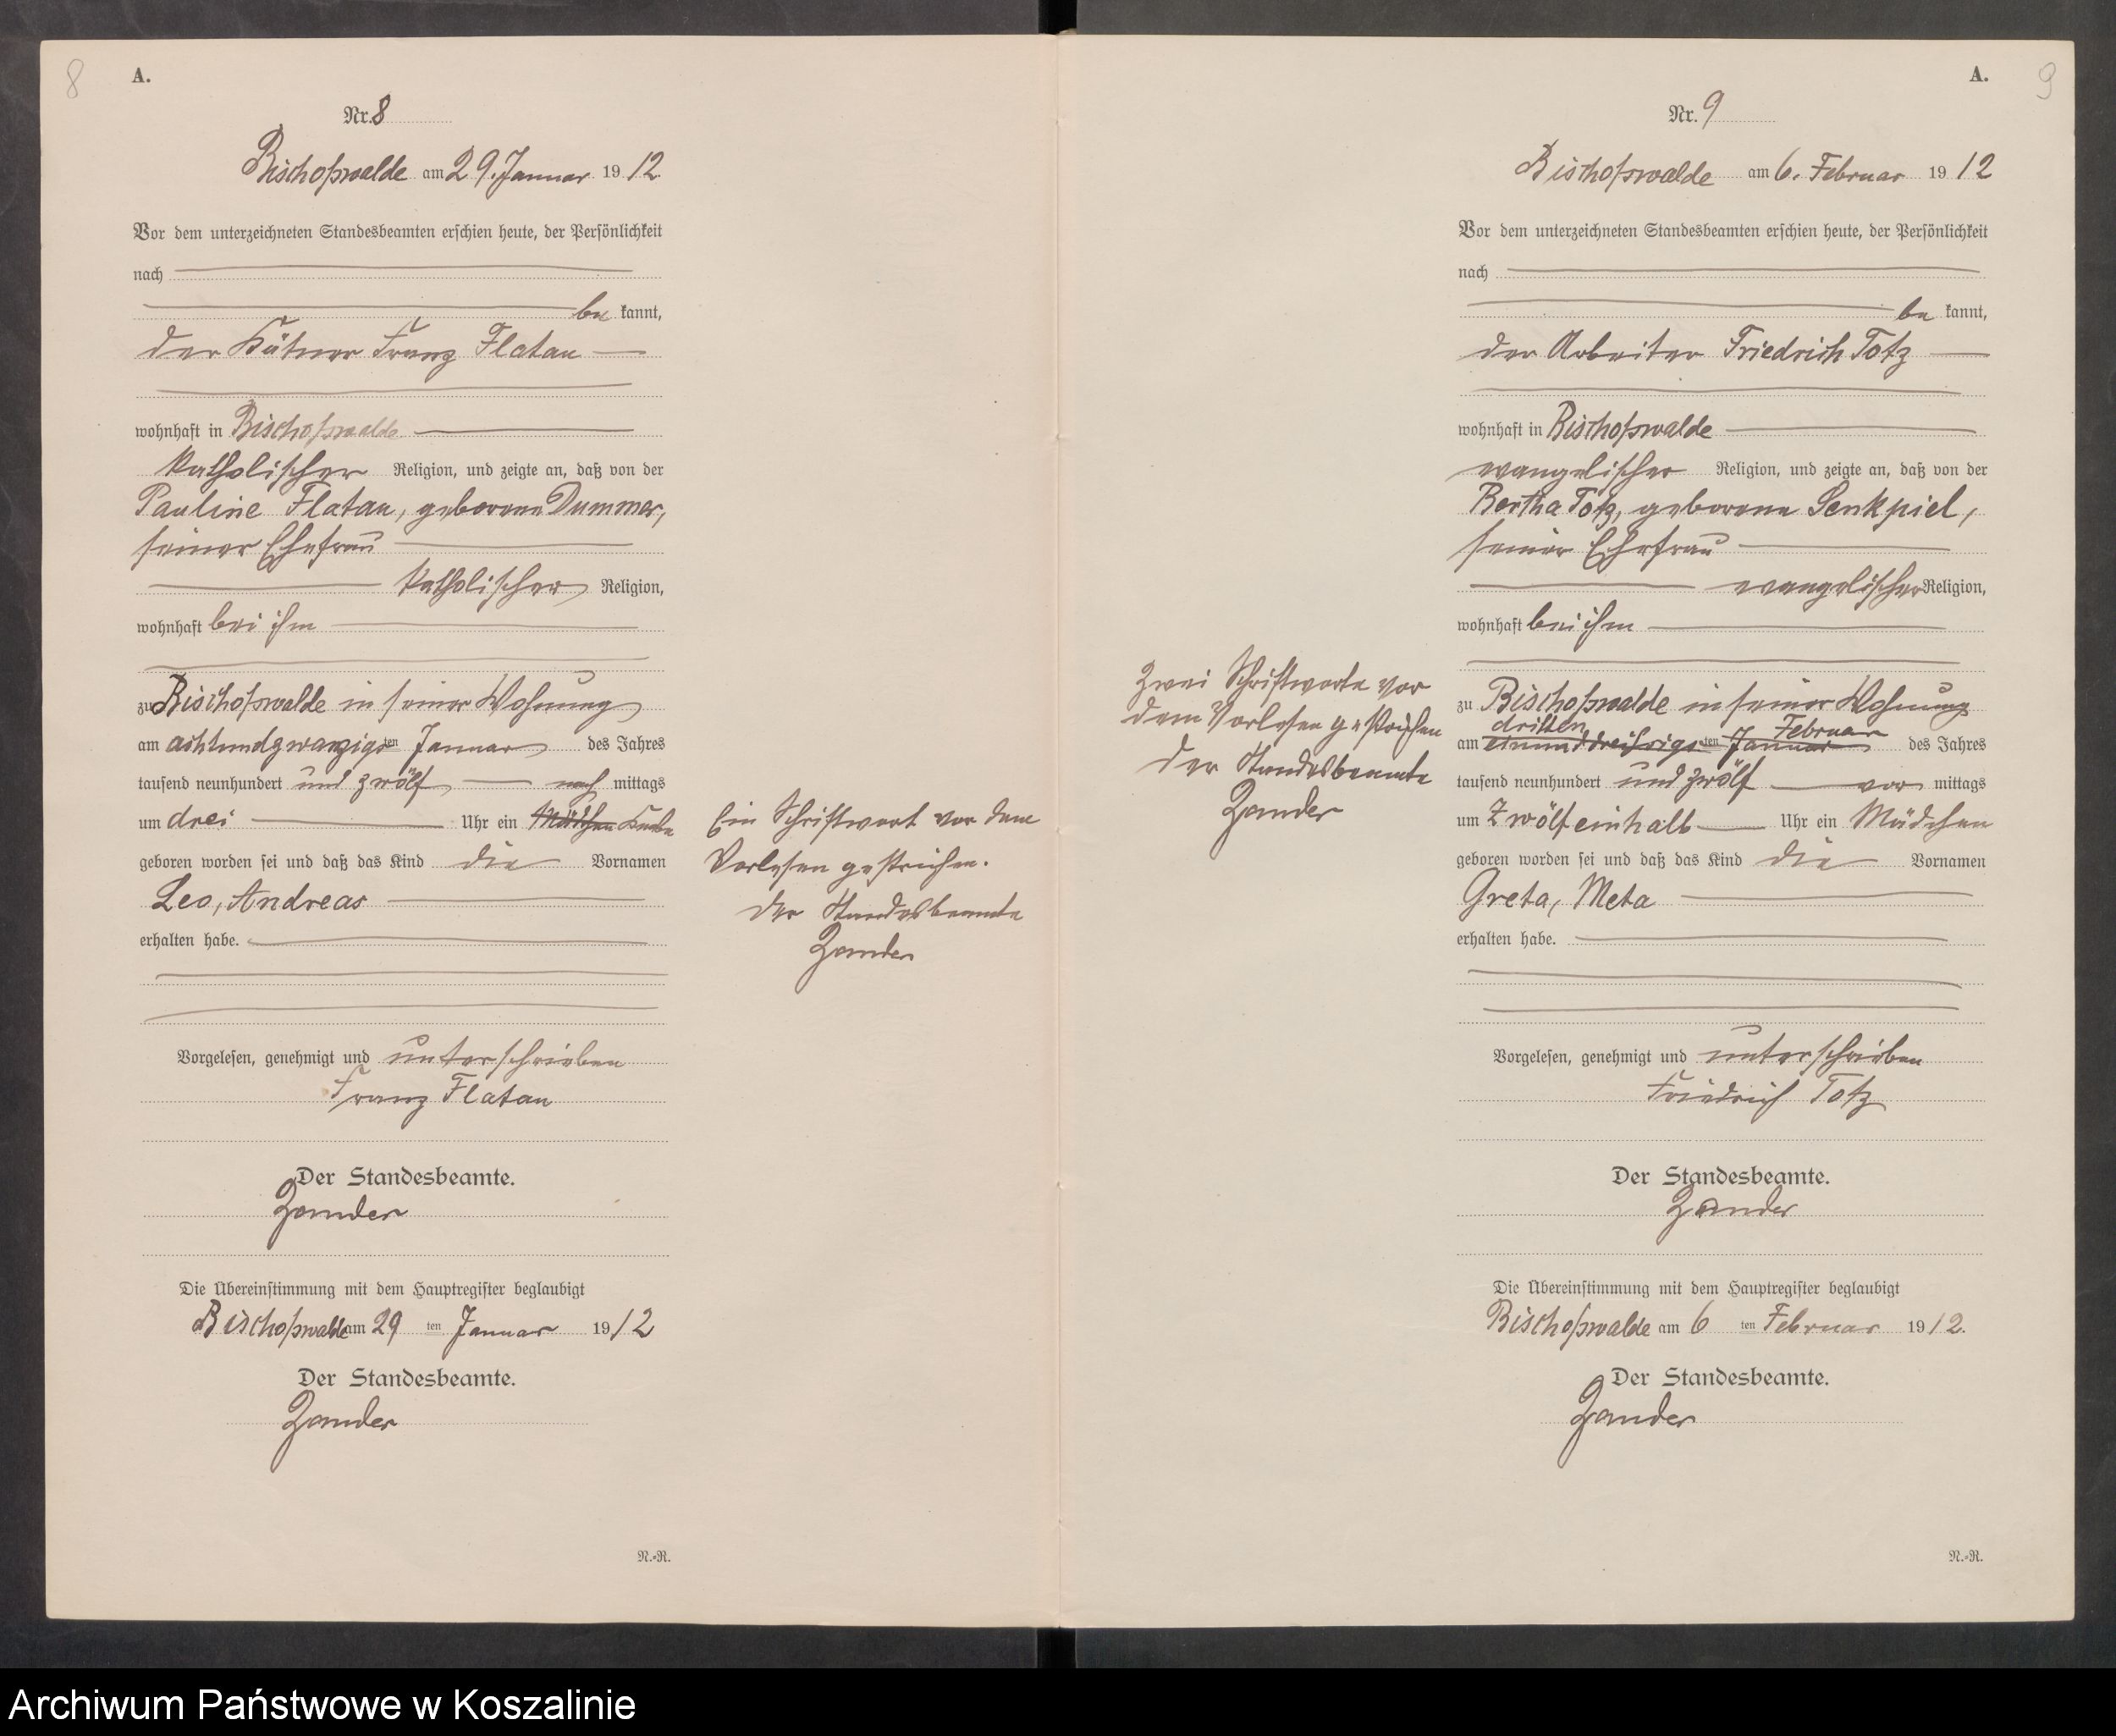 8
A.
Nr. 8
Bischofswalde am 29. Januar 1912
Vor dem unterzeichneten Standesbeamten erschien heute, der Persönlichkeit
nach
be kannt,
der Kätner Franz Flatau
wohnhaft in Bischofswalde
katholischer Religion, und zeigte an, daß von der
Pauline Flatau, geborene Dummer,
seiner Ehefrau
katholischer Religion,
wohnhaft bei ihm
zu Bischofswalde in seiner Wohnung
am achtundzwanzigsten Januar des Jahres
tausend neunhundert und zwölf nach mittags
um drei Uhr ein Mädchen Knabe
geboren worden sei und daß das Kind die Vornamen
Leo, Andreas
erhalten habe.
Vorgelesen, genehmigt und unterschrieben
Franz Flatau
Der Standesbeamte.
Zander
Die Übereinstimmung mit dem Hauptregister beglaubigt
Bischofswalde am 29 ten Januar 1912
Der Standesbeamte.
Zander
N.-R.
Ein Schriftwort vor dem
Vorlesen gestrichen.
Der Standesbeamte
Zander
A.
9
Nr. 9
Bischofswalde am 6. Februar 1912
Vor dem unterzeichneten Standesbeamten erschien heute, der Persönlichkeit
nach
be kannt,
der Arbeiter Friedrich Totz
wohnhaft in Bischofswalde
evangelischer Religion, und zeigte an, daß von der
Bertha Totz, geborene Senkpiel,
seiner Ehefrau
evangelischer Religion,
wohnhaft bei ihm
zu Bischofswalde in seiner Wohnung
dritten Februar
am einunddreißigsten Januar des Jahres
tausend neunhundert und zwölf vor mittags
um Zwölfeinhalb Uhr ein Mädchen
geboren worden sei und daß das Kind die Vornamen
Greta, Meta
erhalten habe.
Vorgelesen, genehmigt und unterschrieben
Friedrich Totz
Der Standesbeamte.
Zander
Die Übereinstimmung mit dem Hauptregister beglaubigt
Bischofswalde am 6 ten Februar 1912.
Der Standesbeamte.
Zander
N.-R.
Zwei Schriftworte vor
dem Vorlesen gestrichen
Der Standesbeamte
Zander
Archiwum Państwowe w Koszalinie